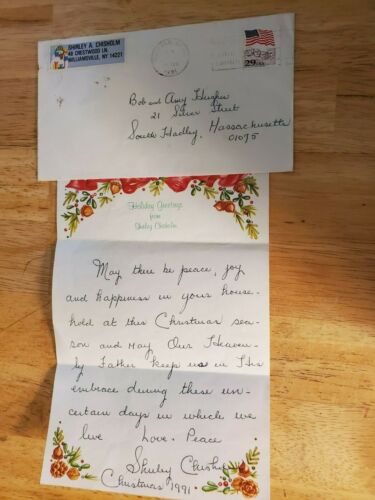 SHIRLEY A. CHISHOLM
48 CRESTWOOD LN.
WILLIAMSVILLE, NY 14221
29 USA
Bob and Amy Hughes
21 Silver Street
South Hadley, Massachusetts
01075
Holiday Greetings
from
Shirley Chisholm
May there be peace, joy
and happiness in your house-
hold at this Christmas sea-
son and may Our Heaven-
ly Father keep us in His
embrace during these un-
certain days in which we
live Love. Peace
Shirley Chisholm
Christmas 1991